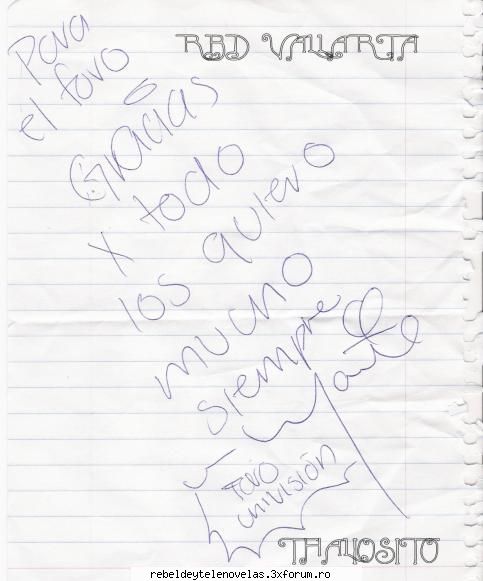 RBD VALLARTA
Para
el foro
Gracias
x todo
los quiero
mucho
siempre
Maite
Foro
univisión
THALIOSITO
rebeldeytelenovelas.3xforum.ro